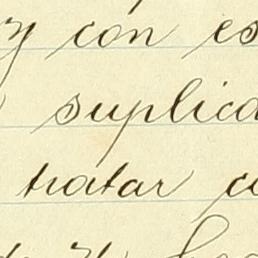 y con es
suplica
tratar c